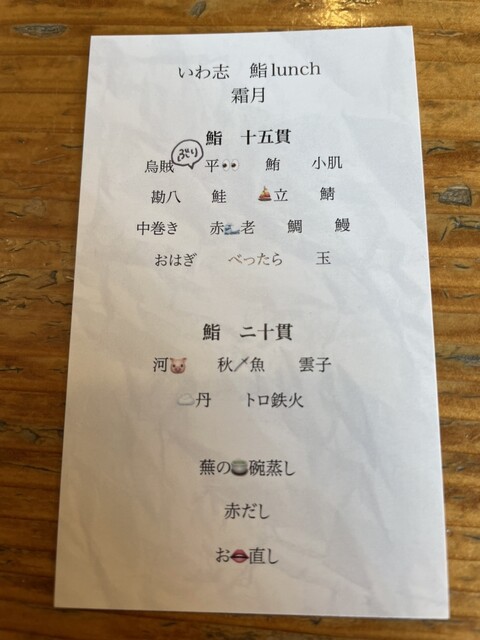 いわ志 鮨lunch
霜月
鮨 十五貫
ぶり
烏賊 平👀 鮪 小肌
勘八 鮭 ⛵立 鯖
中巻き 赤🌊老 鯛 鰻
おはぎ べったら 玉
鮨 二十貫
河🐷 秋🗡魚 雲子
☁丹 トロ鉄火
蕪の🍵碗蒸し
赤だし
お👄直し